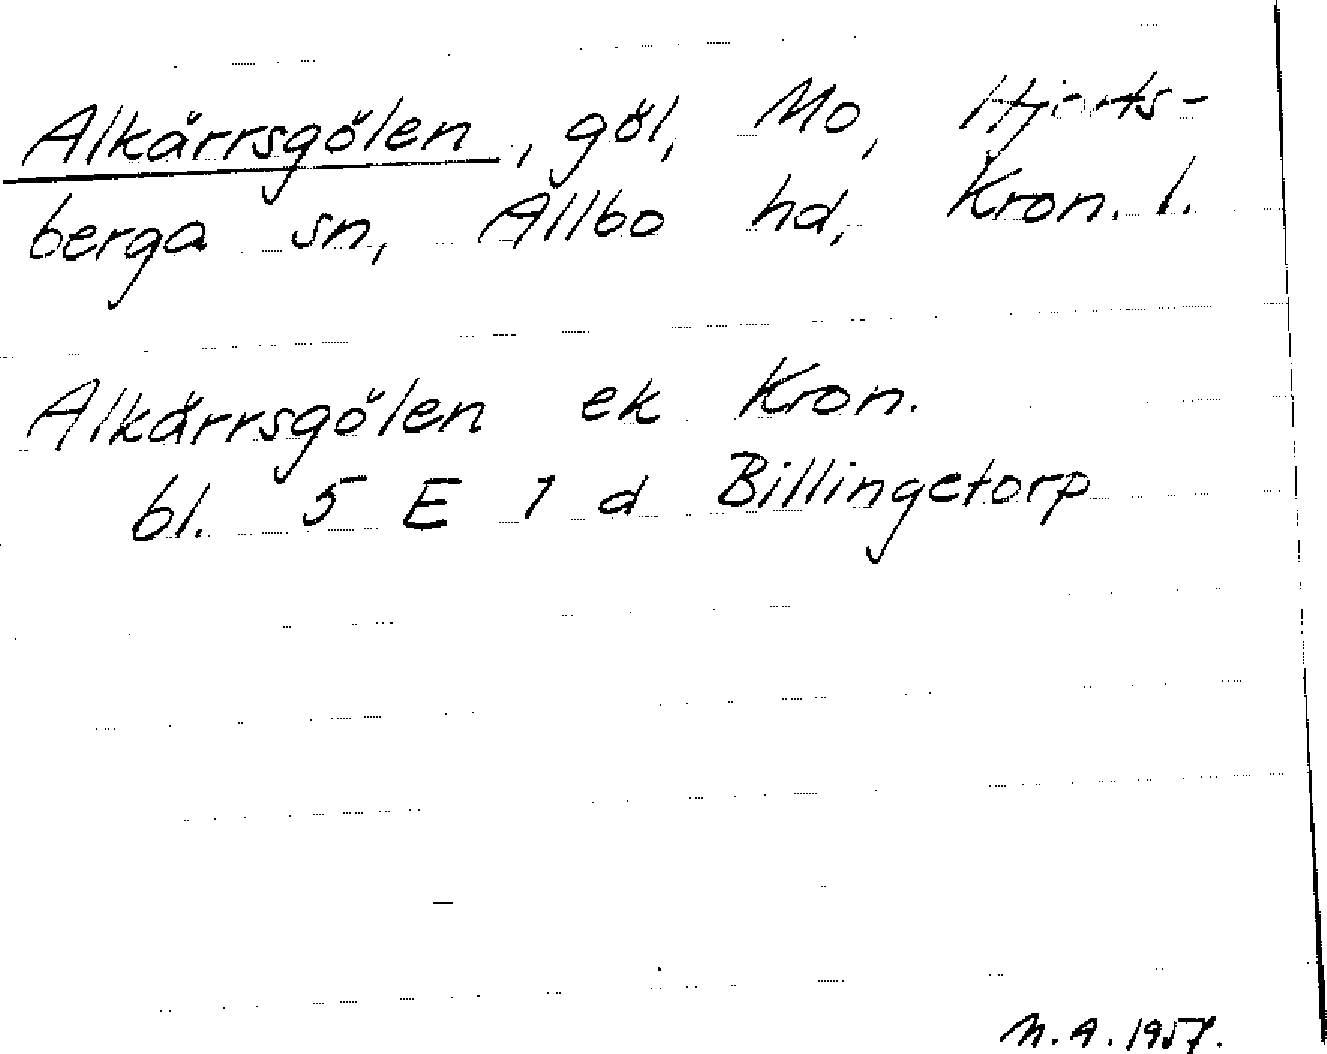 Alkärrsgölen, göl, Mo, Hjorts-
berga sn, Allbo hd, Kron. l.
Alkärrsgölen ek Kron.
bl. 5 E 1 d Billingetorp
N. A. 1957.